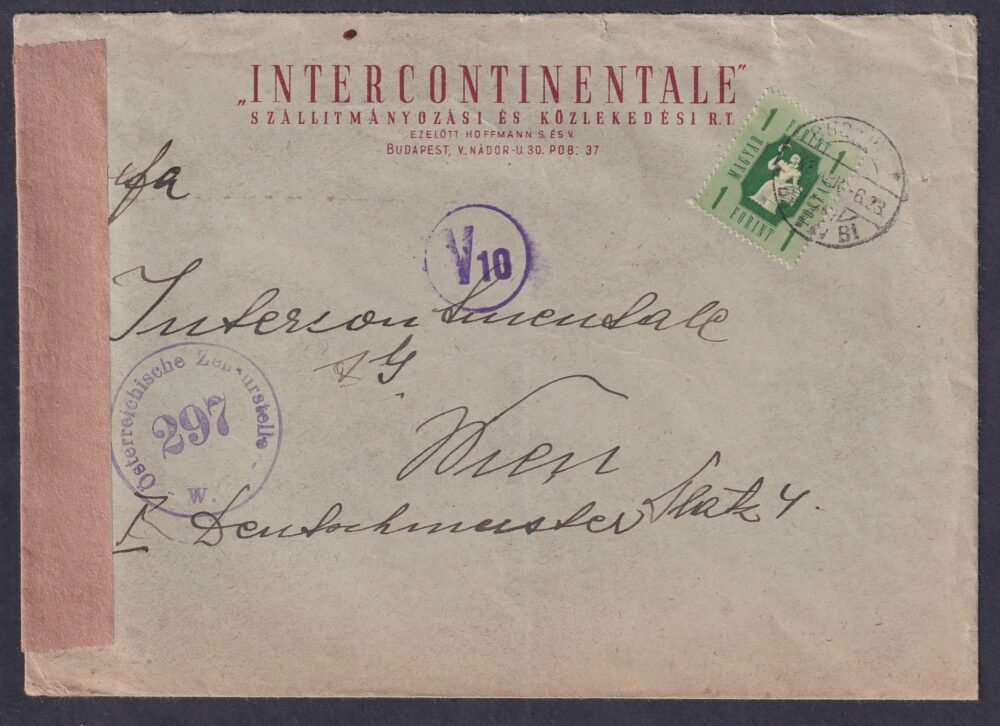 „INTERCONTINENTALE”
SZÁLLITMÁNYOZÁSI ÉS KÖZLEKEDÉSI R.T.
EZELŐTT HOFFMANN S. ÉS V.
BUDAPEST, V. NÁDOR-U. 30. POB: 37
1 FORINT 1
MAGYAR POSTA
1 FORINT 1
6.23
BI
fa
V10
Intercontinentale
AG
Wien
I Deutschmeister Platz 4.
Österreichische Zensurstelle
297
W.